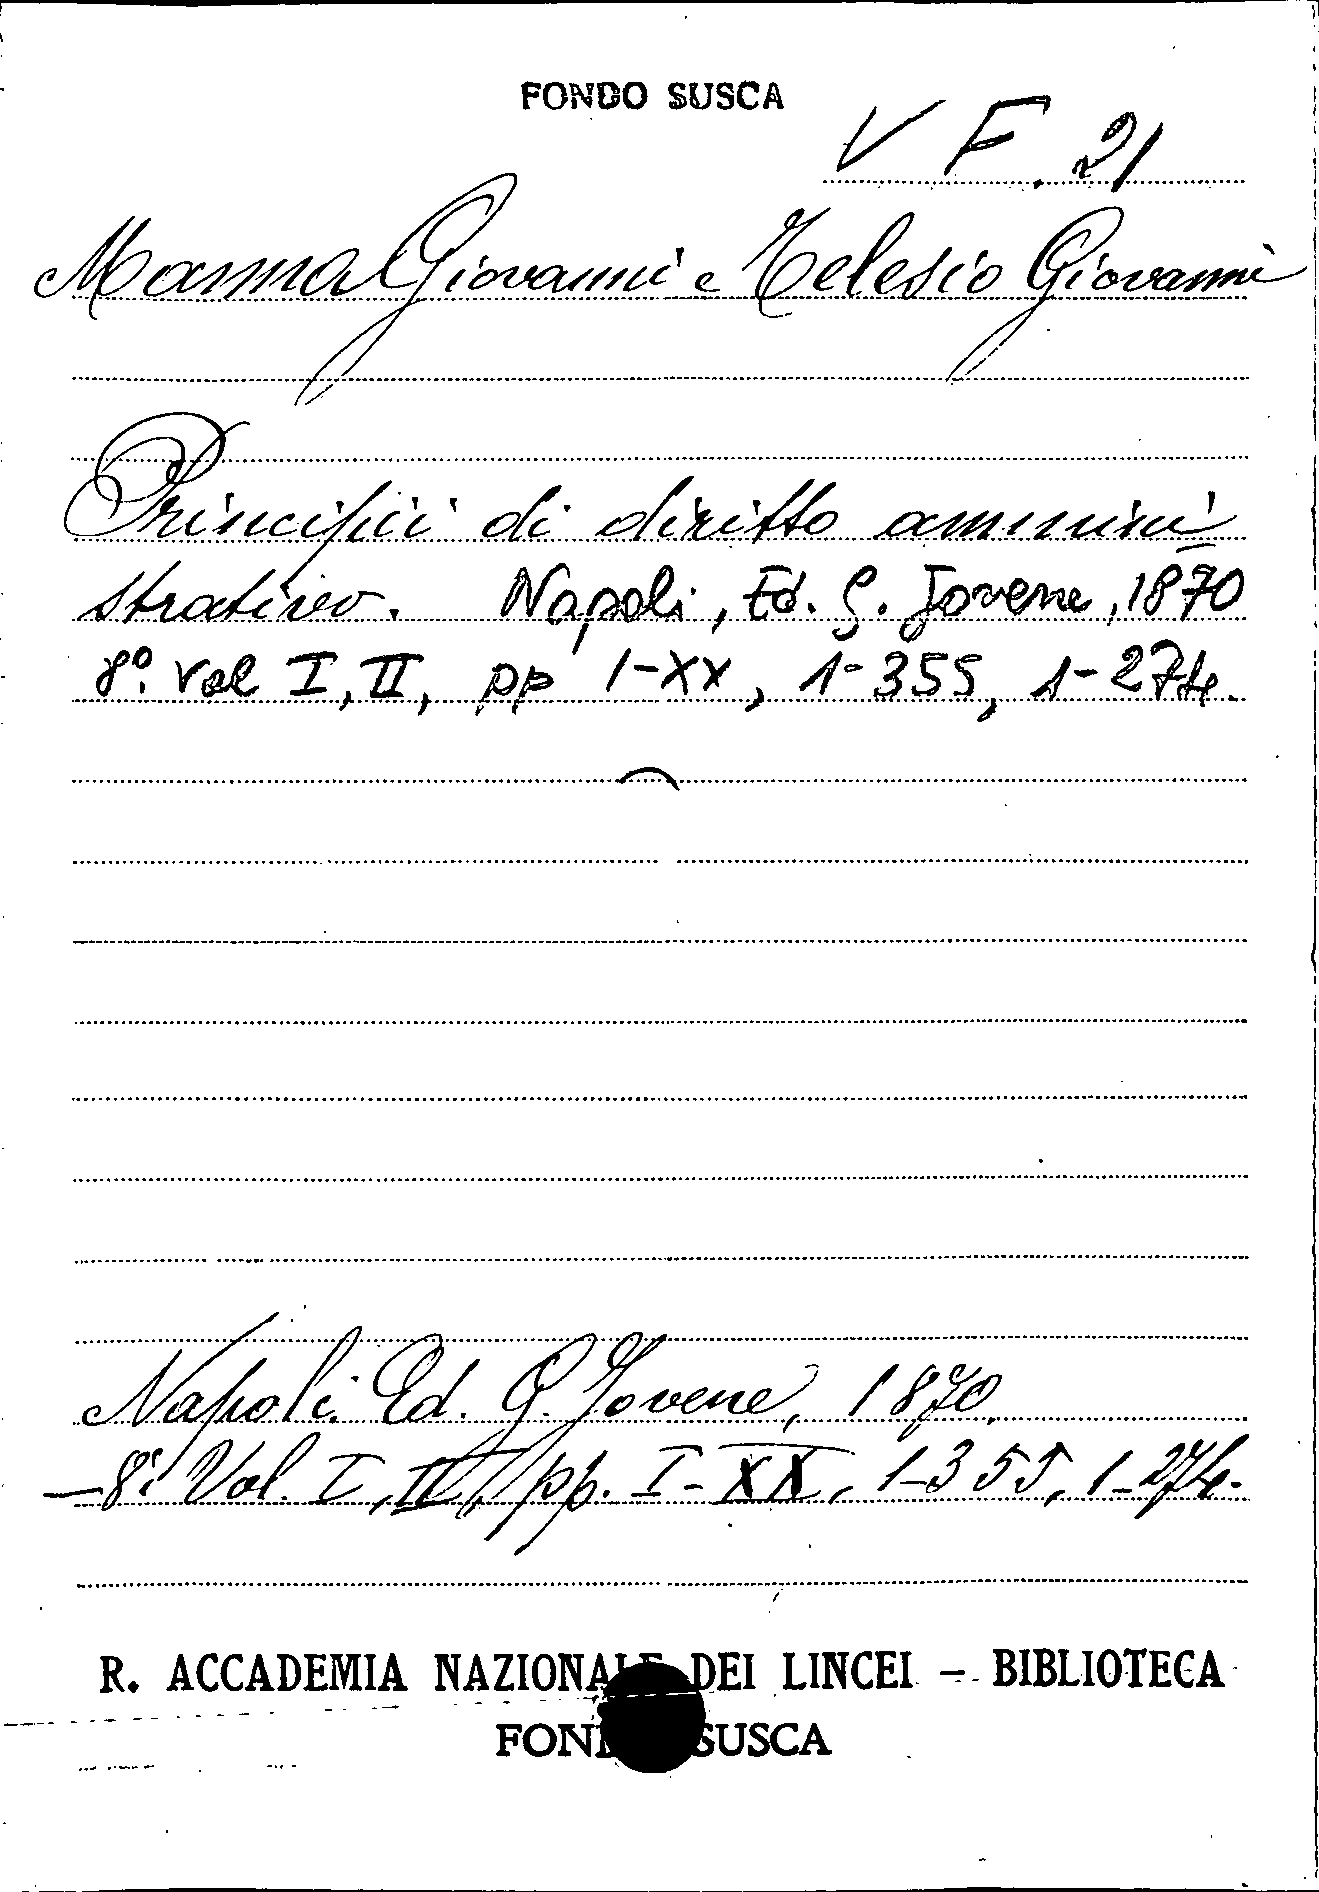 FONDO SUSCA
V F. 21
Manna Giovanni e Telesio Giovanni
Principii di diritto ammini
strativo. Napoli, Ed. G. Jovene, 1870
8º. Vol I, II, pp I-XX, 1-355, 1-274.
Napoli. Ed. G. Jovene, 1870.
-8º. Vol. I, II, pp. I-XX, 1-355, 1-274.
R. ACCADEMIA NAZIONALE DEI LINCEI - BIBLIOTECA
FONDO SUSCA